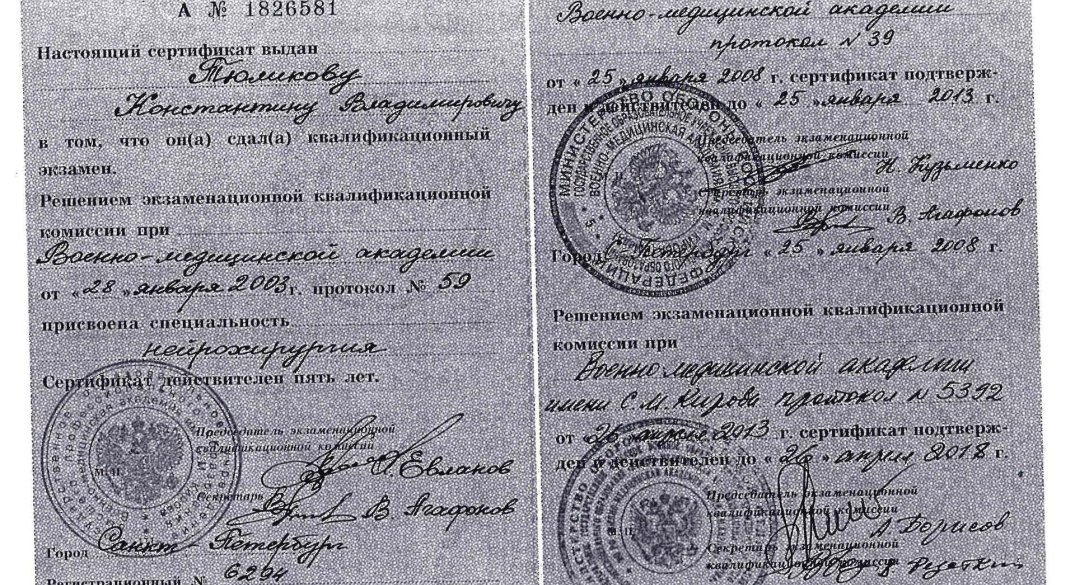 А № 1826581
Настоящий сертификат выдан
Тюликову
Константину Владимировичу
в том, что он(а) сдал(а) квалификационный
экзамен.
Решением экзаменационной квалификационной
комиссии при
Военно-медицинской академии
от «28» января 2003 г. протокол № 59
присвоена специальность
нейрохирургия
Сертификат действителен пять лет.
Председатель экзаменационной
квалификационной комиссии
Евланов
М.П.
Секретарь
В. Агафонов
Город Санкт-Петербург
Регистрационный № 6294
Военно-медицинской академии
протокол N 39
от «25» января 2008 г. сертификат подтверж-
ден и действителен до «25» января 2013 г.
Председатель экзаменационной
квалификационной комиссии
Н. Кузьменко
Секретарь экзаменационной
квалификационной комиссии
В. Агафонов
Город «25» января 2008 г.
МИНИСТЕРСТВО ОБОРОНЫ
ВОЕННО-МЕДИЦИНСКАЯ
Решением экзаменационной квалификационной
комиссии при
Военно медицинской академии
имени С. М. Кирова протокол N 5392
от «26» апреля 2013 г. сертификат подтверж-
ден и действителен до «26» апреля 2018 г.
Председатель экзаменационной
квалификационной комиссии
Д. Борисов
Секретарь экзаменационной
квалификационной комиссии